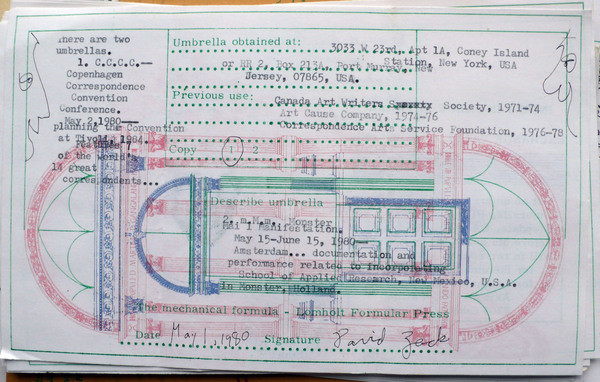 There are two
umbrellas.
1. C.C.C.C.—
Copenhagen
Correspondence
Convention
Conference.
May 2, 1980—
planning the Convention
at Tivoli, 1984.
of the world's
14 great
correspondents...
Umbrella obtained at: 3033 W 23rd, Apt 1A, Coney Island
Station, New York, USA
or RR 2, Box 213A, Port Murray, New
Jersey, 07865, USA.
Previous use:
Canada Art Writers Society, 1971-74
Art Cause Company, 1974-76
Correspondence Arts Service Foundation, 1976-78
Copy 1 2
Describe umbrella
2. m.M.m. Monster
Mail Manifestation.
May 15-June 15, 1980—
Amsterdam... documentation and
performance related to incorporating
School of Applied Research, New Mexico, U.S.A.
in Monster, Holland.
The mechanical formula - Lomholt Formular Press
Date May 1, 1980 Signature David Zack